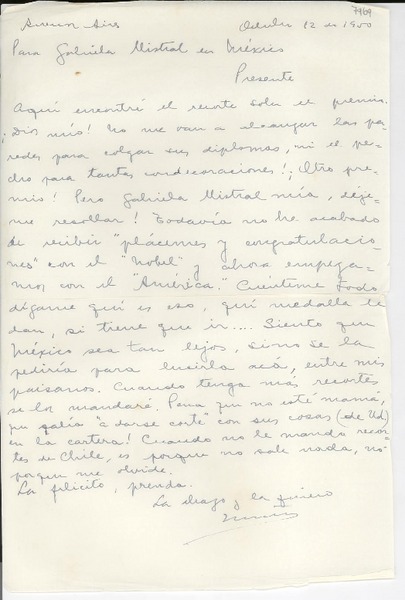 7969
Buenos Aires Octubre 12 de 1950
Para Gabriela Mistral en México
Presente
Aquí encontré el recorte sobre el premio.
¡Dios mío! No me van a alcanzar las pa-
redes para colgar sus diplomas, ni el pe-
cho para tantas condecoraciones! ¡Otro pre-
mio! Pero Gabriela Mistral mía, déje-
me resollar! Todavía no he acabado
de recibir "plácemes y congratulacio-
nes" con el "Nobel" y ahora empeza-
mos con el "América." Cuénteme todo
dígame qué es eso, qué medalla le
dan, si tiene que ir.... Siento que
México sea tan lejos, sino se la
pediría para lucirla acá, entre mis
paisanos. Cuando tenga más recortes
se los mandaré. Pena que no esté mamá,
que salía "a darse corte" con sus cosas (de Ud)
en la cartera! Cuando no le mando recor-
tes de Chile, es porque no sale nada, no
porque me olvide.
La felicito, prenda.
La abrazo y la quiero